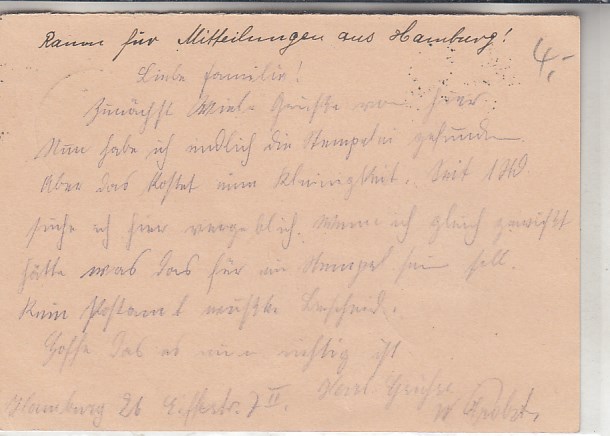 Raum für Mitteilungen aus Hamburg!
4,-
Liebe Familie!
Zunächst Viel Grüße von hier
Nun habe ich endlich die Stempelei gefunden.
Aber das kostet eine Kleinigkeit. Seit 1 Std.
suche ich hier vergeblich. Wenn ich gleich gewußt
hätte was das für ein Stempel sein soll.
Kein Postamt wußte Bescheid.
Hoffe das es nun richtig ist
Grüße
Hamburg 26 II.
W